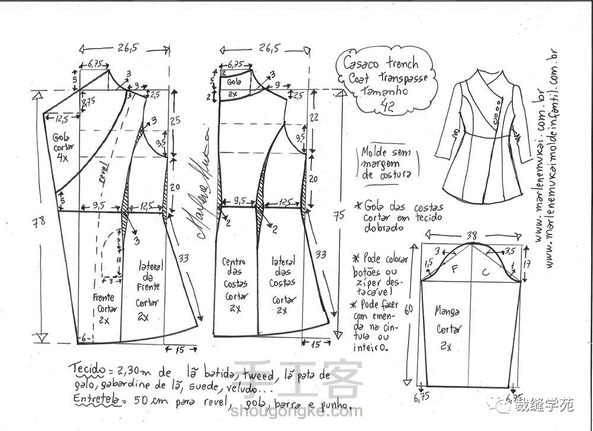 26,5
6,75
3
9
2,5
5
8,75
12,5
Gola
cortar
4x
revel
25
3,5
20
9,5
12,5
78
3
2
33
Frente
Cortar
2x
lateral
da
Frente
Cortar
2x
6
15
Marlene Mukai
26,5
6,75
Gola
2x
3
9
2,5
5
2
22
3,5
20
9,5
12,5
2
3
2
75
33
Centro
das
Costas
Cortar
2x
lateral
das
Costas
Cortar
2x
15
Casaco trench
Coat Transpasse
Tamanho
42
Molde sem
margem
de costura
* Gola das costas
cortar em tecido
dobrado
* Pode colocar
botões ou
ziper des-
tacável
* Pode fazer
com emen-
da na cin-
tula ou
inteiro.
www.marlenemukai.com.br
www.marlenemukaimoldeinfantil.com.br
38
1,5
3
3,5
1
17
F
C
60
Manga
Cortar
2x
6,75
6,75
Tecido = 2,30m de lã batida, tweed, lã pata de
galo, gabardine de lã, suede, veludo...
Entretela = 50 cm para revel, gola, barra e punho.
手工客
shougongke.com
裁缝学苑